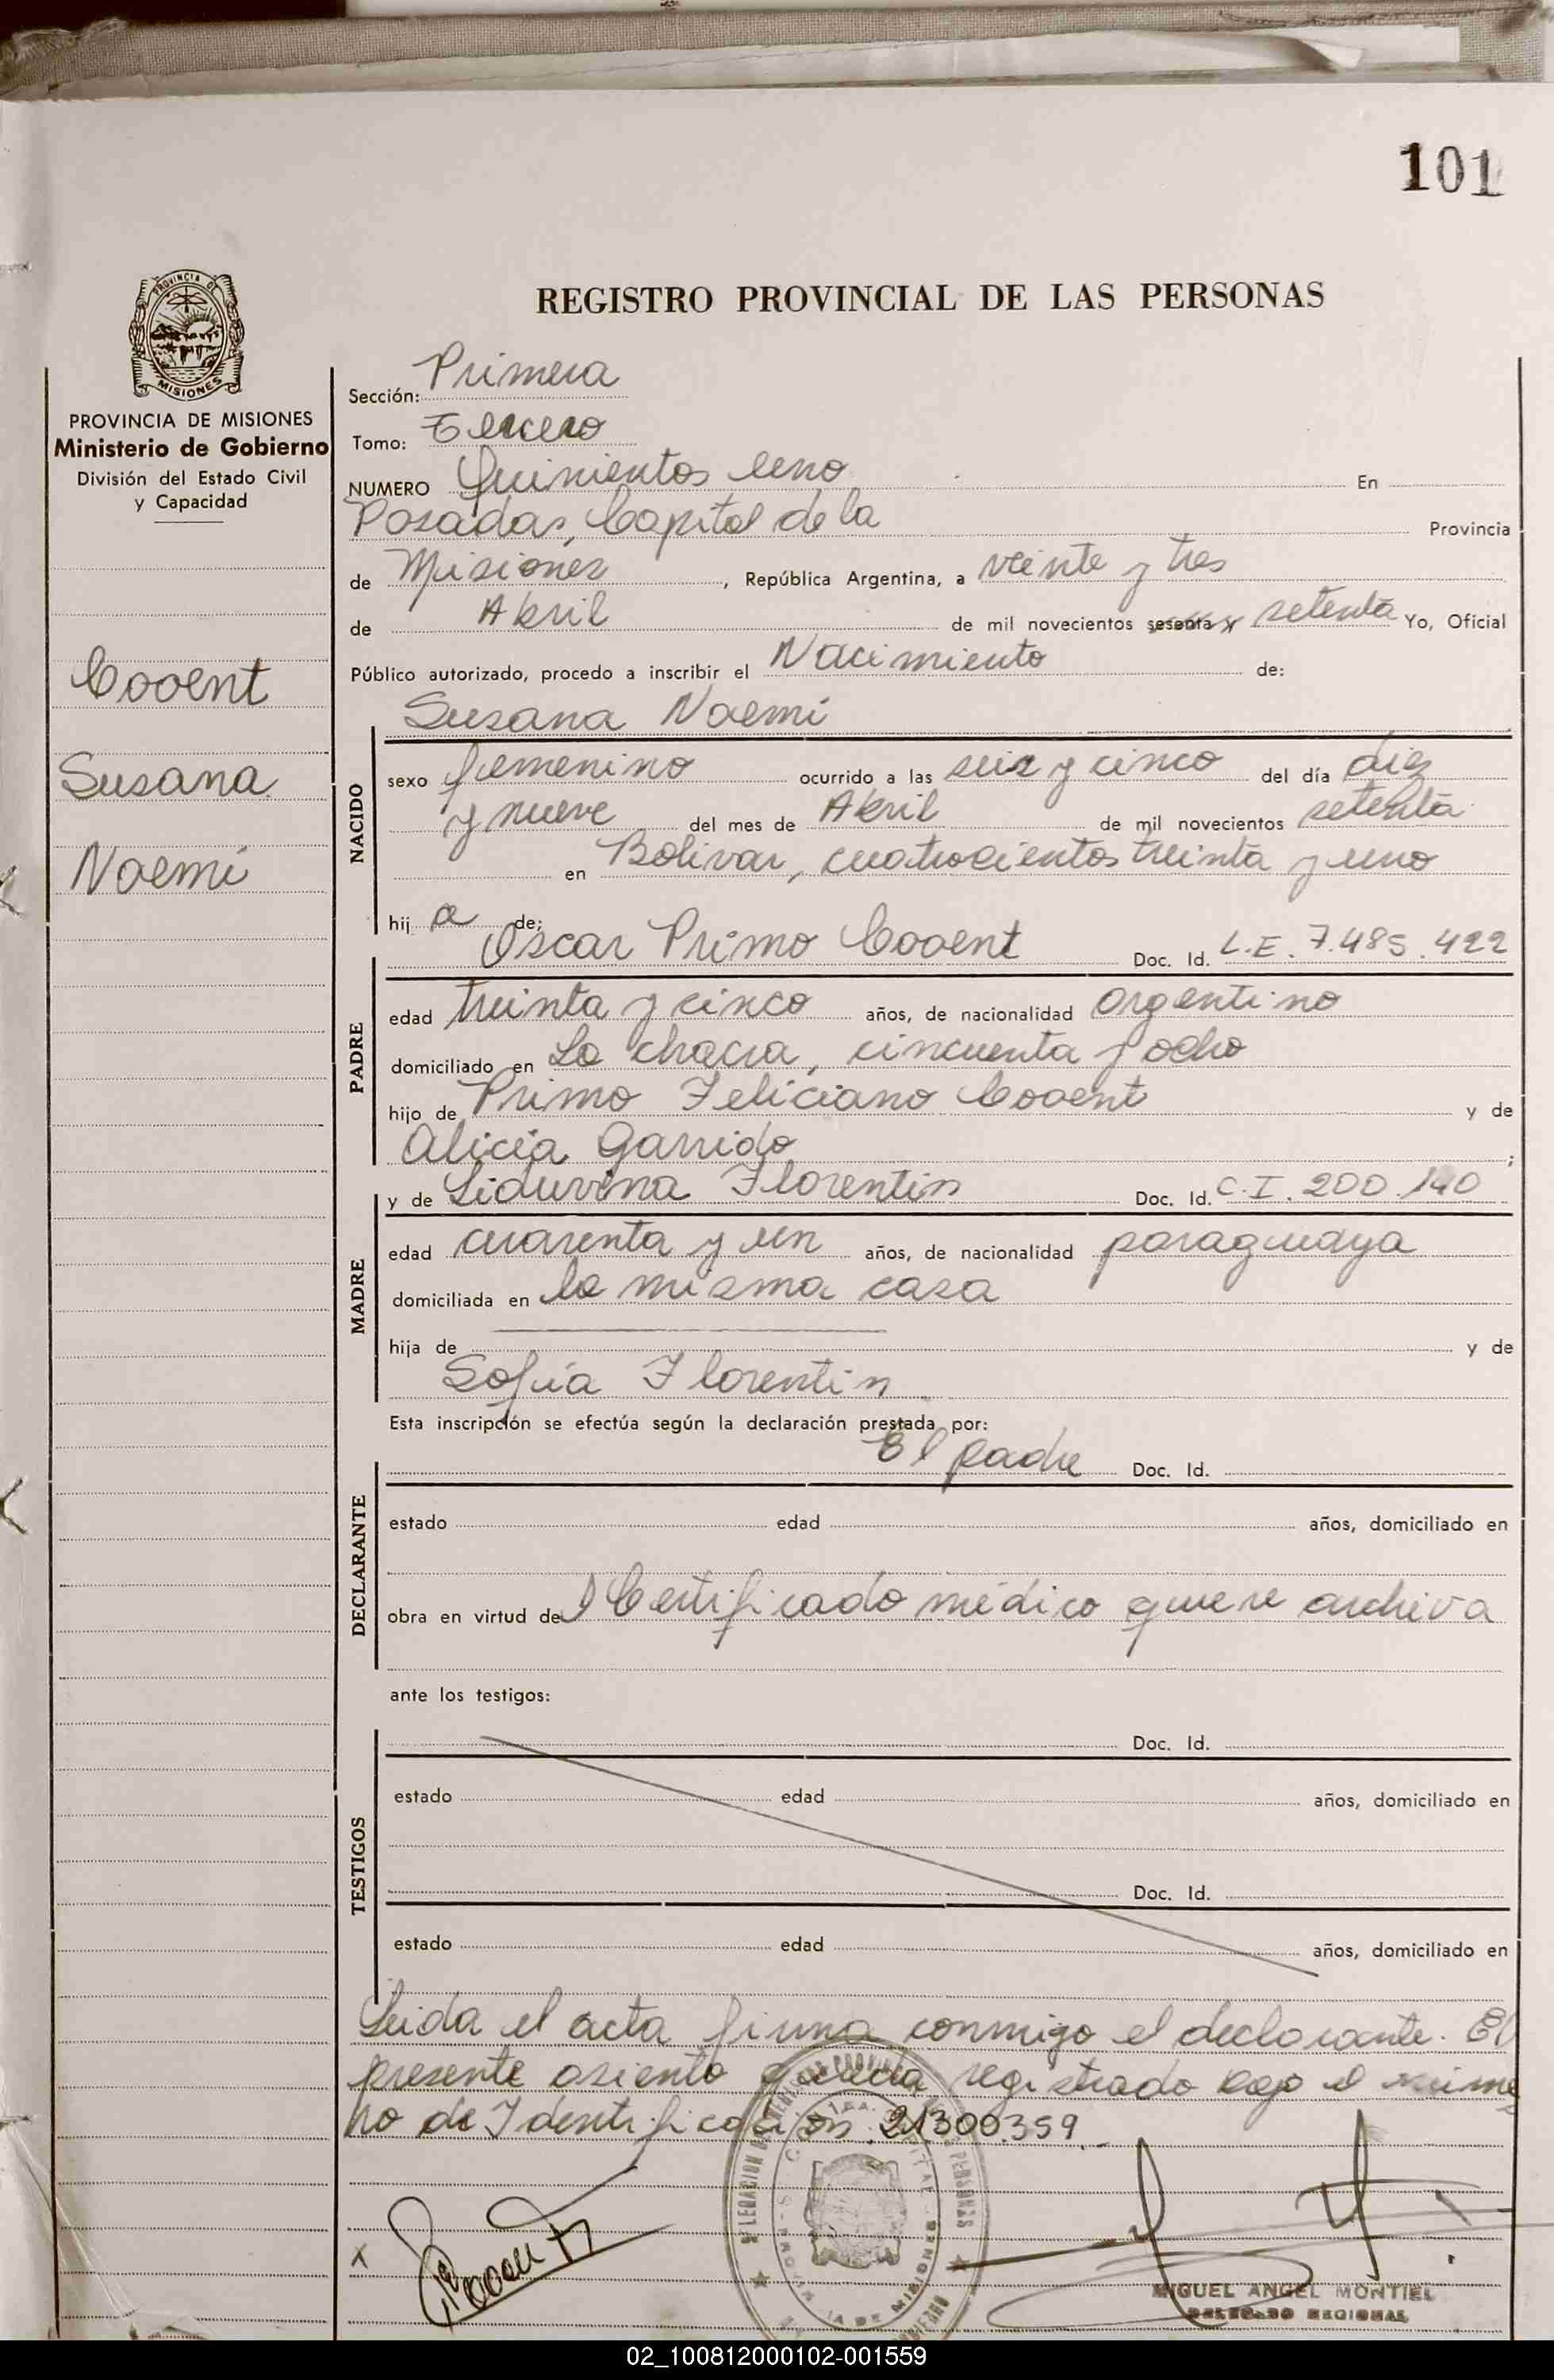 101
PROVINCIA DE
MISIONES
PROVINCIA DE MISIONES
Ministerio de Gobierno
División del Estado Civil
y Capacidad
Cooent
Susana
Noemí
REGISTRO PROVINCIAL DE LAS PERSONAS
Sección: Primera
Tomo: Tercero
NUMERO Quinientos uno En
Posadas, Capital de la Provincia
de Misiones, República Argentina, a veinte y tres
de Abril de mil novecientos sesenta y setenta Yo, Oficial
Público autorizado, procedo a inscribir el Nacimiento de:
Susana Noemí
NACIDO
sexo femenino ocurrido a las seis y cinco del día diez
y nueve del mes de Abril de mil novecientos setenta
en Bolivar, cuatrocientos treinta y uno
hij a de:
Oscar Primo Cooent Doc. Id. L.E. 7.485.422
PADRE
edad treinta y cinco años, de nacionalidad argentino
domiciliado en La chacra, cincuenta y ocho
hijo de Primo Feliciano Cooent y de
Alicia Garrido ;
y de Liduvina Florentin Doc. Id. C.I. 200.140
MADRE
edad cuarenta y un años, de nacionalidad paraguaya
domiciliada en la misma casa
hija de y de
Sofia Florentin
Esta inscripción se efectúa según la declaración prestada por:
El padre Doc. Id.
DECLARANTE
estado edad años, domiciliado en
obra en virtud del Certificado médico que se archiva
ante los testigos:
Doc. Id.
TESTIGOS
estado edad años, domiciliado en
Doc. Id.
estado edad años, domiciliado en
Leida el acta firma conmigo el declarante. El
presente asiento queda registrado bajo el núme
ro de Identificación 21300.359.
X Cooent
MIGUEL ANGEL MONTIEL
DELEGADO REGIONAL
02_100812000102-001559